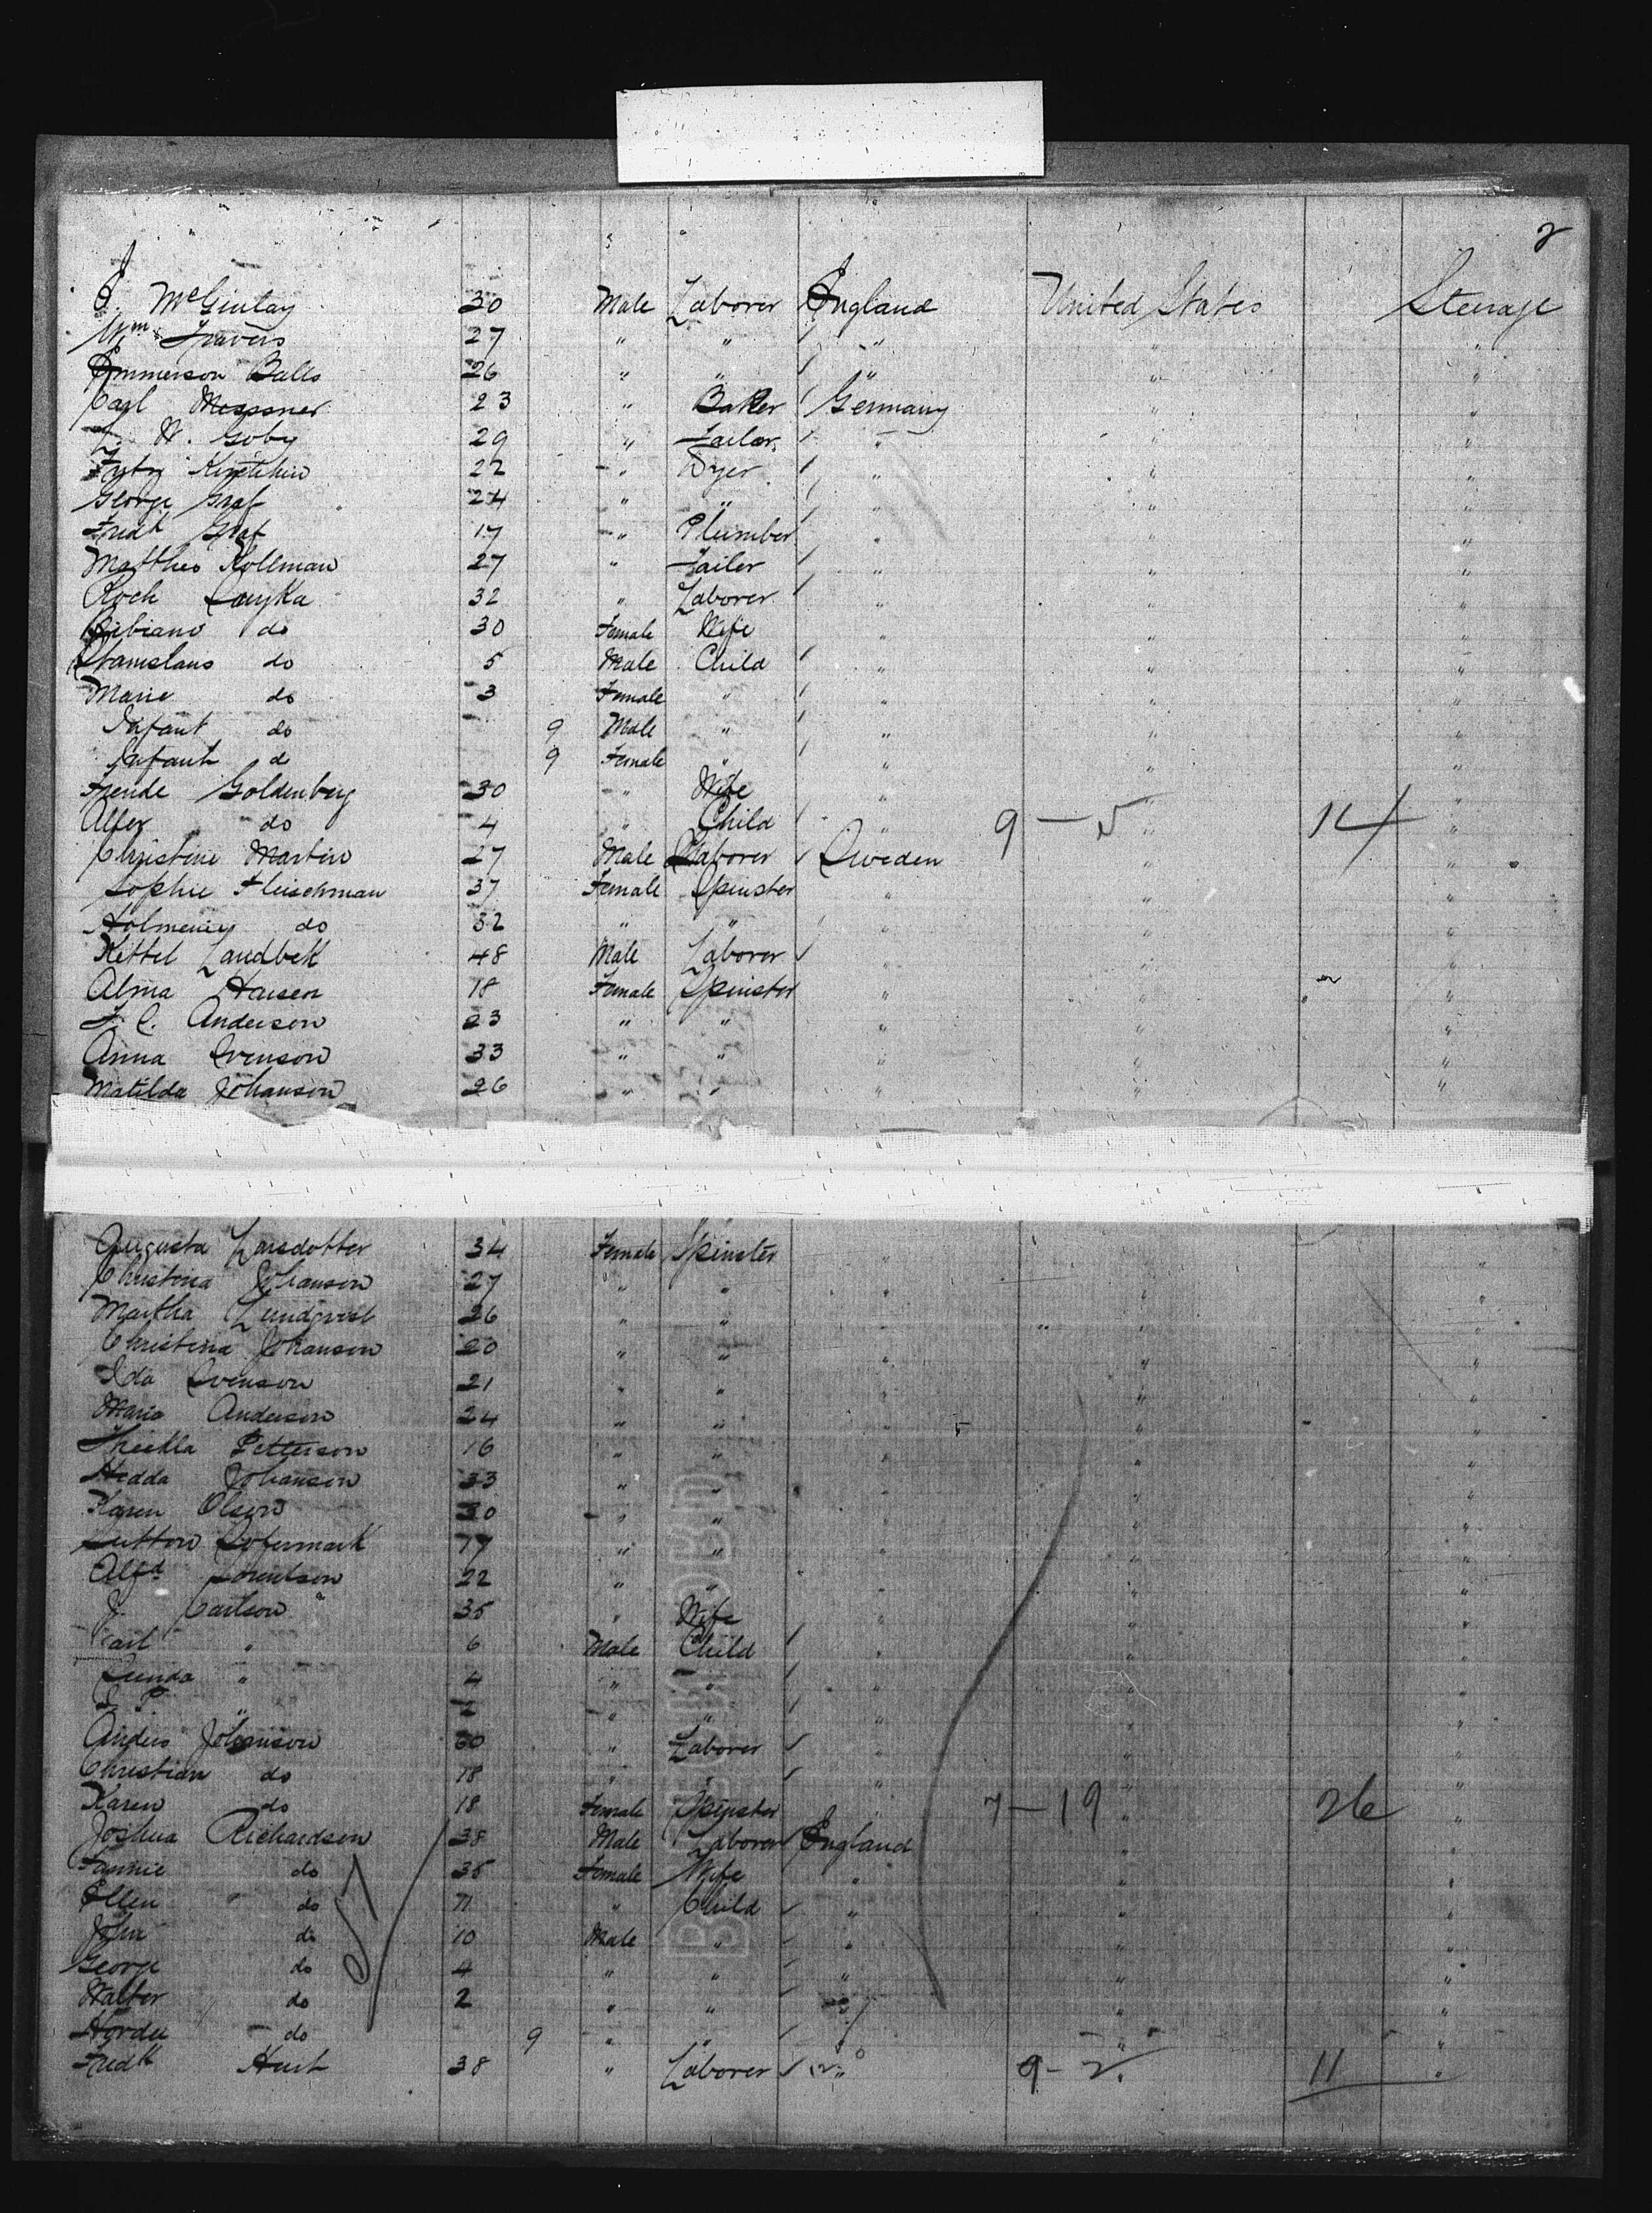 2
J. McGinlay 30 Male Laborer England United States Steerage
Wm Travers 27 " " " " "
Emmerson Balls 26 " " " " "
Carl Messner 23 " Baker Germany " "
J. W. Goby 29 " Tailor " " "
Fritz 22 " Dyer " " "
George Graf 24 " " " " "
Fredk Graf 17 " Plumber " " "
Mattheo Kollman 27 " Tailer " " "
Roch 32 " Laborer " " "
Bibiano do 30 Female Wife " " "
Stanislaus do 5 Male Child " " "
Marie do 3 Female " " " "
Infant do 9 Male " " " "
Infant do 9 Female " " " "
Freude Goldenberg 30 " Wife " " "
do 4 " Child " 9 — 5 " 14 "
Christine Martin 27 Male Laborer Sweden " "
Sophie Fleischman 37 Female Spinster " " "
do 32 " " " " "
Kettel Landbek 48 Male Laborer " " "
Alma Hansen 18 Female Spinster " " "
J. C. Anderson 23 " " " " "
Anna Svenson 33 " " " " "
Matilda Johanson 26 " " " " "
Augusta Larsdotter 34 Female Spinster " "
Christina Johanson 27 " " " " "
Martha Lundqvist 26 " " " " "
Christina Johanson 20 " " " " "
Ida Svenson 21 " " " " "
Maria Anderson 24 " " " " "
Petterson 16 " " " " "
Hedda Johansen 33 " " " " "
Karen Olsen 30 " " " " "
17 " " " " "
Alfd Lorentson 22 " " " " "
J. Carlson 35 " Wife " " "
Carl " 6 Male Child " " "
" 4 " " " " "
" 2 " " " " "
Anders Johanson 60 " Laborer " " "
Christian do 18 " " " " "
Karen do 18 Female Spinster " 7 — 19 " 26 "
Joshua Richardson 38 Male Laborer England " "
Fannie do 35 Female Wife " " "
Ellen do 11 " Child " " "
John do 10 Male " " " "
George do 4 " " " " "
Walter do 2 " " " " "
do 9 " " " " "
Fredk Hurst 38 " Laborer " 9 - 2 11 "